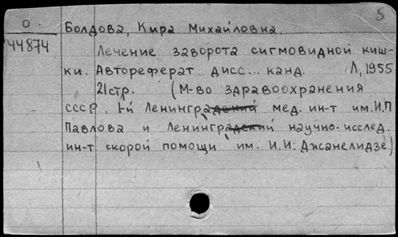 5
О. Болдова, Кира Михайловна.
44874
Лечение заворота сигмовидной киш-
ки. Автореферат дисс... канд. Л, 1955
21стр. (М-во здравоохранения
СССР. 1-й Ленинградский мед. ин-т им. И.П
Павлова и Ленинградский научно-исслед.
ин-т скорой помощи им. И.И. Джанелидзе)